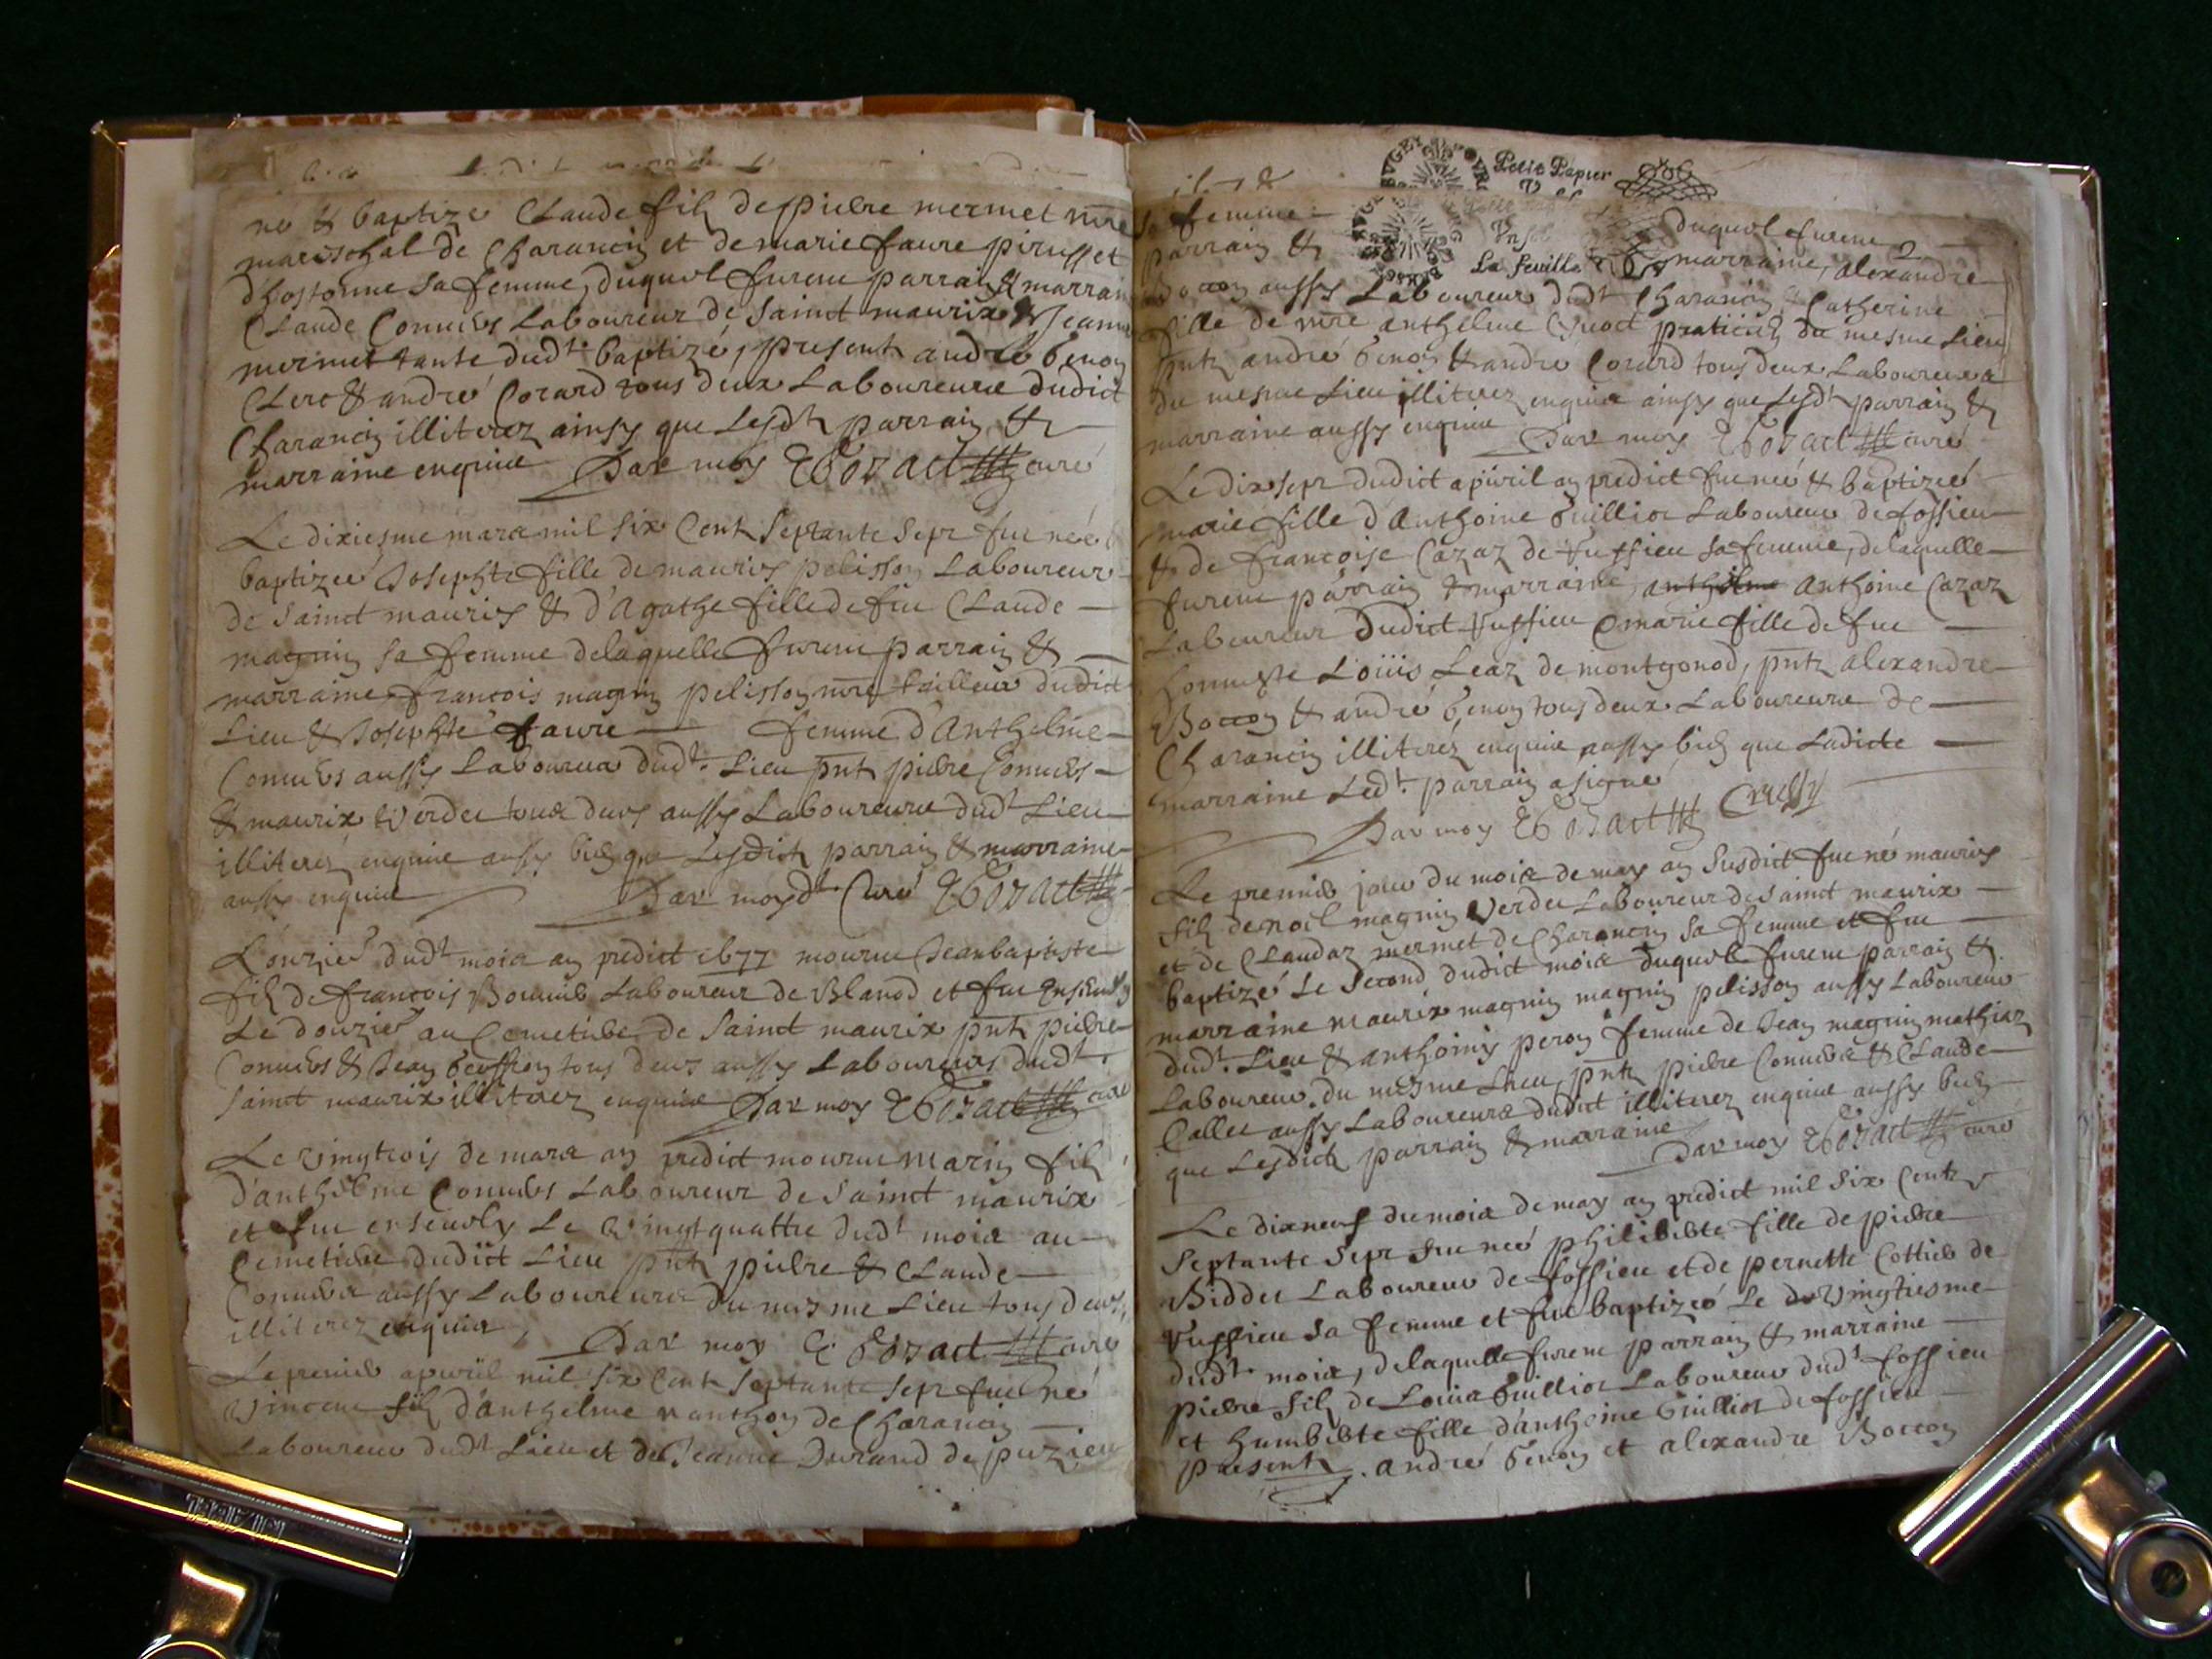 né & baptizé Claude filz de pierre mermet mre
mareschal de Charancin et de marie faure pirusset
d'hostonne sa femme, duquel furent parrain & marrain
Claude Conners Laboureur de Sainct maurix & Jeanne
mermet tante dudt baptizé, present andre benon
Clerc & andré Corard tous deux Laboureurs dudict
Charancin illiterez ainsy que lesdts parrain &
marraine enquis Par moy curé
Le dixiesme mars mil six cent septante sept fut née
baptizée Josephte fille de mauris pelisson Laboureur
de Sainct mauris & d'Agathe fille de fu Claude
magnin sa femme de laquelle furent parrain &
marraine francois magnin pelisson mre tailleur dudict
Lieu & Josephte faure femme d'Anthelme
Conners aussy Laboureur dudt Lieu pnts pierre Conners
& maurix Verdet tous deux aussy Laboureurs dudt Lieu
illiterés enquis aussy bien que lesdicts parrain & marraine
aussy enquis Par moydt Curé
L'onzie dudt mois an predict 1677 mourut Jean baptiste
filz de francois Bonnet Laboureur de Blanod et fut enseuely
Le douzie au Cemetiere de Sainct maurix pnts pierre
Conners & Jean geoffron tous deux aussy Laboureurs dudt
Sainct maurix illiterez enquis Par moy curé
Le vingtrois de mars an predict mourut marin filz
d'anthelme Conners Laboureur de Sainct maurix
et fut enseuely Le vingtquattre dudt mois au
Cemetiere dudict Lieu pnts pierre & Claude
Conners aussy Laboureurs du mesme Lieu tous deux
illiterez enquis, Par moy curé
Le premier apvril mil six cent septante sept fut né
Vincent filz d'anthelme nanthon de Charancin
Laboureur dudt Lieu et de Jeanne Durand de puzieu
Petit Papier
sa femme duquel furent
parrain & La feuille marraine, alexandre
Boccon aussy Laboureur dudt Charancin & Catherine
fille de mre anthelme praticien du mesme Lieu
pnts andré benon & andre Corard tous deux Laboureurs
du mesme Lieu illiterez enquis ainsy que lesdts parrain &
marraine aussy enquis Par moy curé
Le dixsept dudict apuril an predict fut née & baptizée
marie fille d'Anthoine Guilliot Laboureur de fossieu
& de francoise Cazaz de Vussieu sa femme, de laquelle
furent parrain & marraine anthelme anthoine Cazaz
Laboureur dudict Vussieu & marie fille de fut
honneste Loüis Leaz de montgonod, pnts alexandre
Boccon & andré benon tous deux Laboureurs de
Charancin illiterés enquis aussy bien que Ladicte
marraine Ledt parrain a signé
Par moy
Le premier jour du mois de may an susdict fut né mauris
filz de noel magnin Verdet Laboureur de Sainct maurix
et de Claudaz mermet de Charancin sa femme et fut
baptizé Le Second dudict mois duquel furent parrain &
marraine maurix magnin magnin pelisson aussy Laboureur
dudt Lieu & anthoiny peron femme de Jean magnin mathiaz
Laboureur du mesme Lieu, pnts pierre Conners & Claude
Callet aussy Laboureurs dudict illiterez enquis aussy bien
que Lesdicts parrain & marraine Par moy curé
Le dixneuf du mois de may an predict mil six cents
septante sept fut neé philiberte fille de pierre
Biddet Laboureur de fossieu et de pernette Cottier de
Vussieu sa femme et fut baptizeé Le vingtiesme
dudt mois, de laquelle furent parrain & marraine
pierre filz de Louis Guilliot Laboureur dudt fossieu
et humberte fille d'anthoine Guilliot de fossieu
presents. andré benon et alexandre Boccon